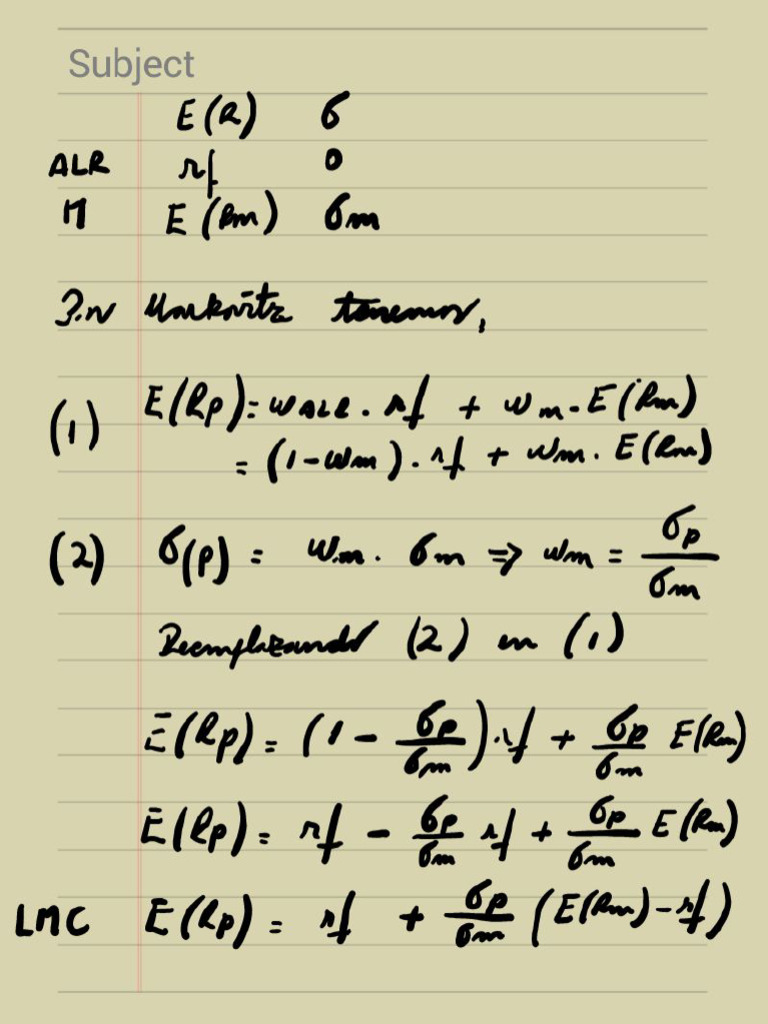 Subject
E(R) σ
ALR rf 0
M E(Rm) σm
Markovitz tenemos,
(1) E(Rp) = wALR . rf + wm . E(Rm)
= (1-wm) . rf + wm . E(Rm)
(2) σ(p) = wm . σm => wm = σp/σm
Reemplazando (2) en (1)
E(Rp) = (1 - σp/σm) . rf + σp/σm E(Rm)
E(Rp) = rf - σp/σm rf + σp/σm E(Rm)
LMC E(Rp) = rf + σp/σm (E(Rm) - rf)